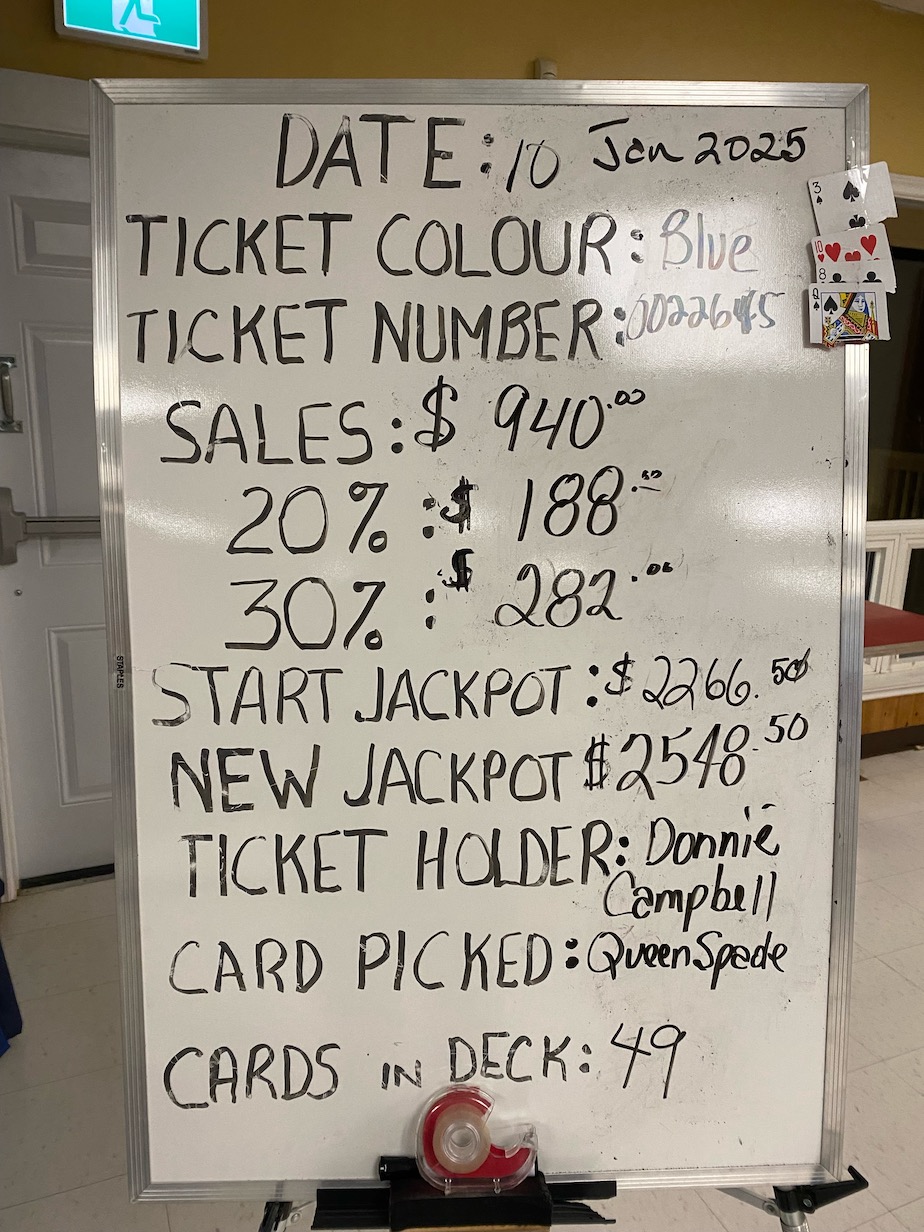 DATE: 10 Jan 2025
TICKET COLOUR: Blue
TICKET NUMBER: 0022645
SALES: $ 940.00
20% : $ 188.00
30% : $ 282.00
START JACKPOT: $ 2266.50
NEW JACKPOT $ 2548.50
TICKET HOLDER: Donnie
Campbell
CARD PICKED: Queen Spade
CARDS IN DECK: 49
3
10
8
Q
STAPLES